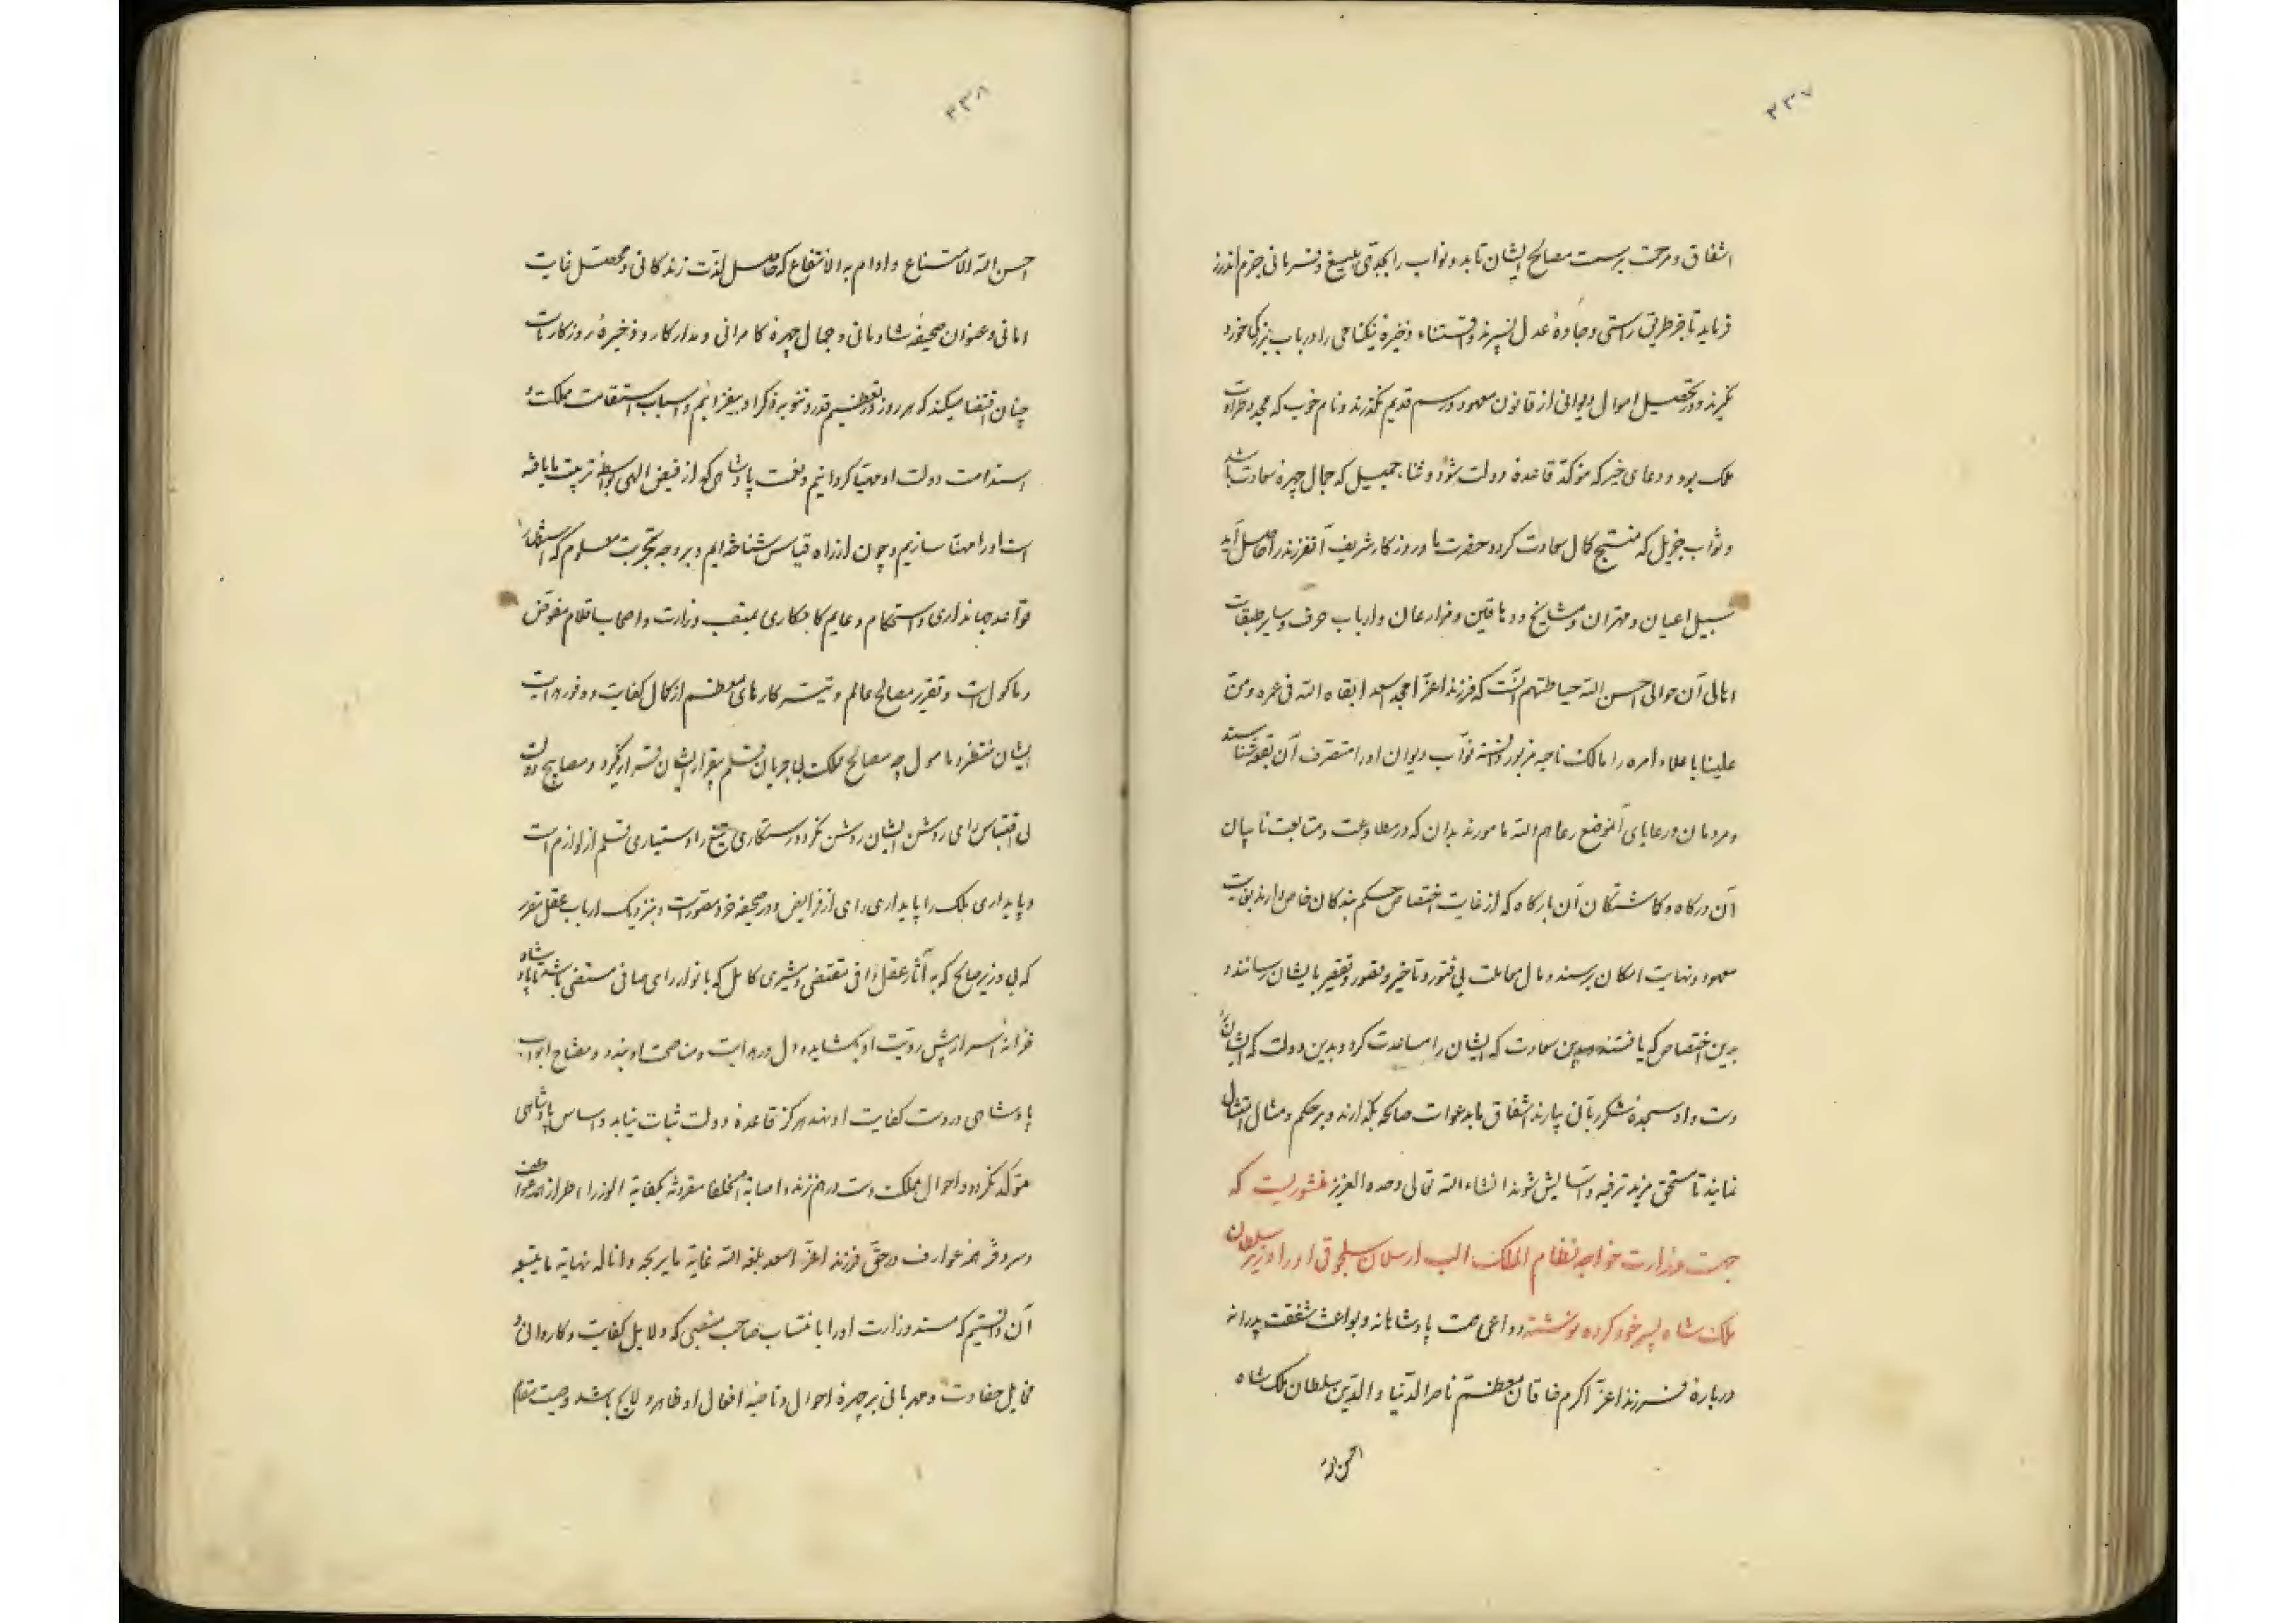 ۲۳۷
اشفاق و مرحمت بر سمت مصالح ایشان تابد و نواب را بجدی بلیغ و فرمانی جزم اندرز
فرماید تا جز طریق راستی و جادهٔ عدل نسپرند و اقتناء ذخیرهٔ نیکنامی را در باب بزرک خورد
نگیرند و در تحصیل اموال دیوانی از قانون معهود و رسم قدیم نگذرند و نام خوب که مجد و طراوت
ملک بود و دعای خیر که موکد قاعدهٔ دولت شود و ثناء جمیل که جمال چهرهٔ سعادت باشد
و ثواب جزیل که منتج کمال سعادت کردد حضرت ما و روزکار شریف آنفرزند را حاصل آید
سبیل اعیان و مهتران و مشایخ و دهاقین و مزارعان و ارباب حرف و سایر طبقات
اهالی آن حوالی احسن الله حیاطتهم آنست که فرزند اعز امجد اسعد ابقاه الله فی عمره و من
علینا باعلاء امره را مالک ناحیه مزبور دانسته نواب دیوان او را متصرف آن بقعه شناسند
و مردمان و رعایای آنموضع رعاهم الله مامورند بدان که در مطاوعت و متابعت نایبان
آن درکاه و کماشتکان آن بارکاه که از غایت اختصاص حکم بندکان خاص دارند بغایت
معهود و نهایت امکان برسند و مال معاملت بی فتور و تاخیر و قصور و تقصیر بایشان رسانند و
بدین اختصاص که یافتند و بدین سعادت که ایشان را مساعدت کرد و بدین دولت که ایشان را
دست داد سجدهٔ شکر ربانی بیارند اشفاق ما بدعوات صالحه بگذارند و بر حکم و مثال امتثال
نمایند تا مستحق مزید ترفیه و آسایش شوند انشاء الله تعالی وحده العزیز منشوریست که
جهت وزارت خواجه نظام الملک الب ارسلان سلجوقی او را وزیر سلطان
ملک شاه پسر خود کرده نوشته دواعی همت پادشاهانه و بواعث شفقت پدرانه
دربارهٔ فرزند اعز اکرم خاقان معظم ناصر الدنیا و الدین سلطان ملک شاه
احسن الله
۲۳۸
احسن الله الامتناع و ادام به الانتفاع که حاصل لذت زندکانی و محصل غایت
امانی و عنوان صحیفهٔ شادمانی و جمال چهرهٔ کامرانی و مدار کار و ذخیرهٔ روزکار ماست
چنان اقتضا میکند که هر روز در تعظیم قدر و تنویه ذکر او بیفزائیم و اسباب استقامت مملکت و
استدامت دولت او مهیا کردانیم و بخت پادشاهی که از فیض الهی بواسطهٔ تربیت ما یافته
است او را مهنا سازیم و چون از راه قیاس شناخته‌ایم و بر وجه تجربت معلوم که استظهار
قواعد جهانداری و استحکام دعایم کامکاری بمنصب وزارت و اصحاب اقلام مفوض
و ماکول است و تقریر مصالح عالم و تیسر کارهای معظم از کمال کفایت و وفور هدایت
ایشان منتظر و مامول چه مصالح مملکت بی جریان قلم بقرار ایشان قرار نگیرد و مصابیح دولت
بی اقتباس رای روشن ایشان روشن نکردد و رستکاری تیغ را دستیاری قلم از لوازم است
و پایداری ملک را پایداری رای از فرایض و در صحیفه خرد مصورست و بنزدیک ارباب عقل مقرر
که بی وزیر صالح که به آثار عقل وافی مقتضی و مشیری کامل که بانوار رای صافی مستضی باشد تا پادشاه
خزانه اسرار پیش رویت او بکشاید و دل در هدایت و مناصحت او بندد و مفتاح ابواب
پادشاهی در دست کفایت او نهد هرکز قاعدهٔ دولت ثبات نیابد و اساس پادشاهی
موکد نکردد و احوال مملکت دست در هم نزند و اصابة الخلفا مقرونة بکفایة الوزراء طراز همه عواطف
و سردفتر همه عوارف در حق فرزند اعز اسعد بلغه الله غایة ما یرجه و اناله نهایة ما یبتغیه
آن دانستیم که مسند وزارت او را بانتساب صاحب منصبی که دلایل کفایت و کاردانی و
مخایل حفاوت و مهربانی بر چهرهٔ احوال و ناصیهٔ افعال او ظاهر و لایح باشد و صیت مقام